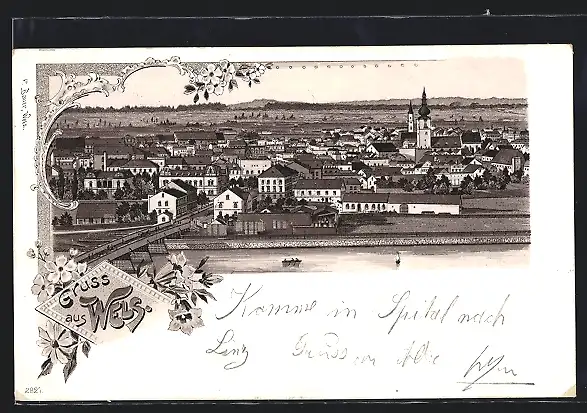 Gruss
aus WELS.
Komme in Spital nach
Linz Gruss an Alle
2821.